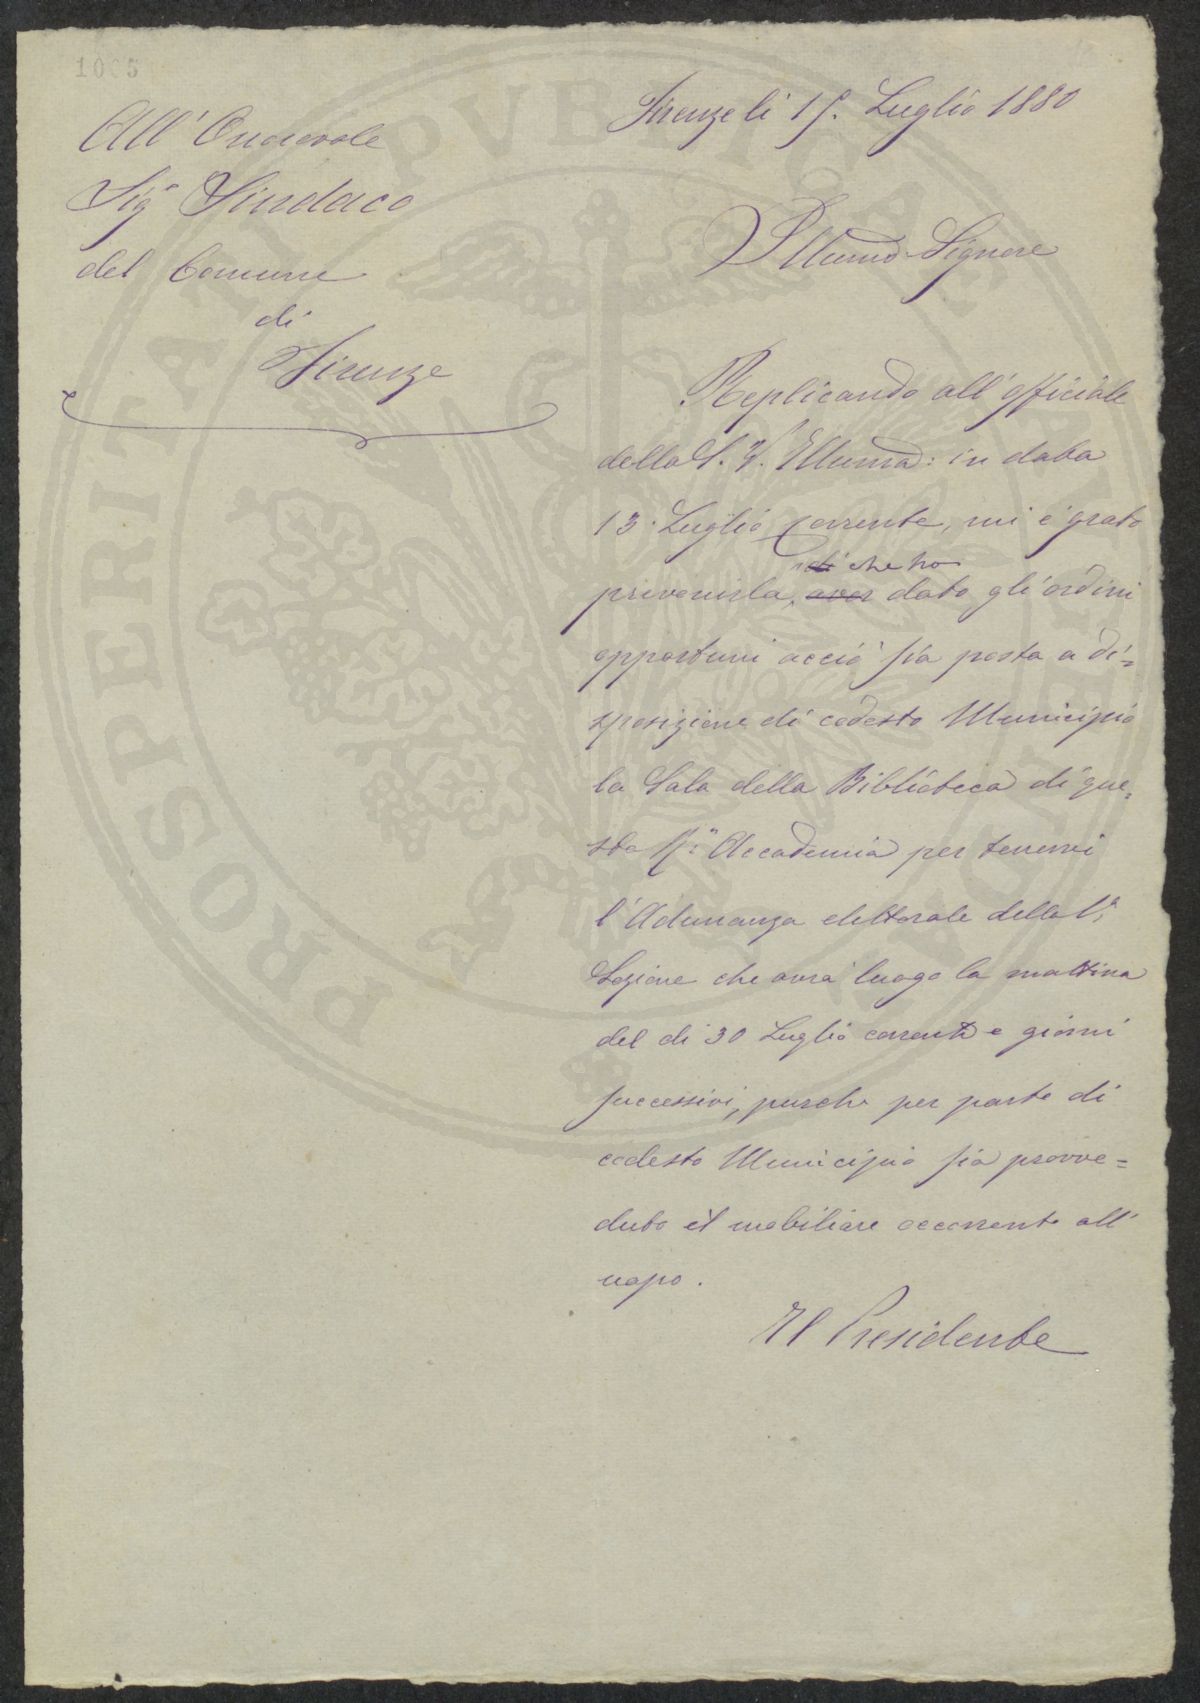 1005
Firenze li 15. Luglio 1880
All' Onorevole
Sigr Sindaco
del Comune
di
Firenze
Illumo Signore
Replicando all' officiale
della S. V. Illuma: in data
13. Luglio Corrente, mi è grato
di che ho
prevenirla, aver dato gli ordini
opportuni acciò sia posta a di=
sposizione di codesto Municipio
la Sala della Biblioteca di que=
sta Ra Accademia per tenervi
l'Adunanza elettorale della 1a
Sezione che avrà luogo la mattina
del dì 30 Luglio corrente e giorni
successivi, purchè per parte di
codesto Municipio sia provve=
duto il mobiliare occorrente all'
uopo.
Il Presidente
PROSPERITATI PVBLICAE